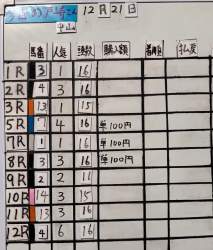 12月21日
中山
馬番 人気 頭数 購入額 着順 払戻
1R 3 1 16
2R 4 3 16
3R 13 1 15
5R 7 4 16 単100円
7R 1 1 16 単100円
8R 3 3 16 単100円
9R 2 2 11
10R 14 3 15
11R 13 3 16
12R 4 6 16